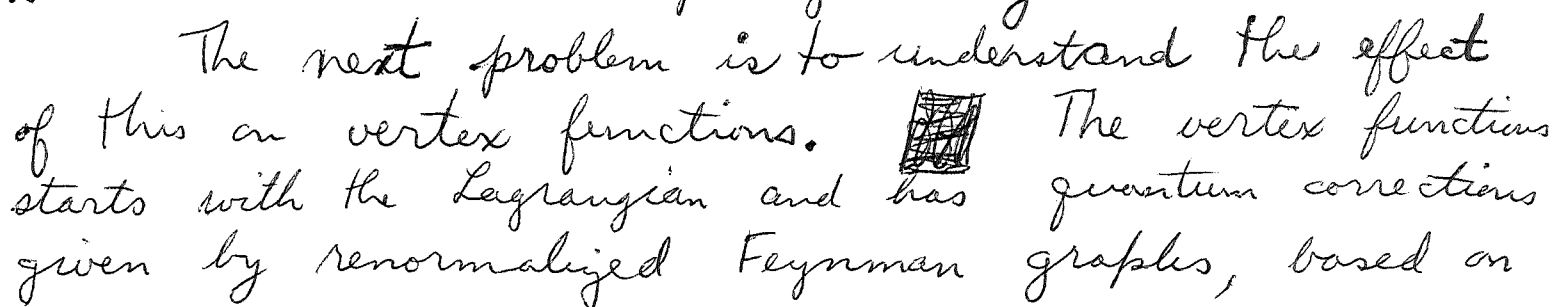 The next problem is to understand the effect
of this on vertex functions. The vertex functions
starts with the Lagrangian and has quantum corrections
given by renormalized Feynman graphs, based on